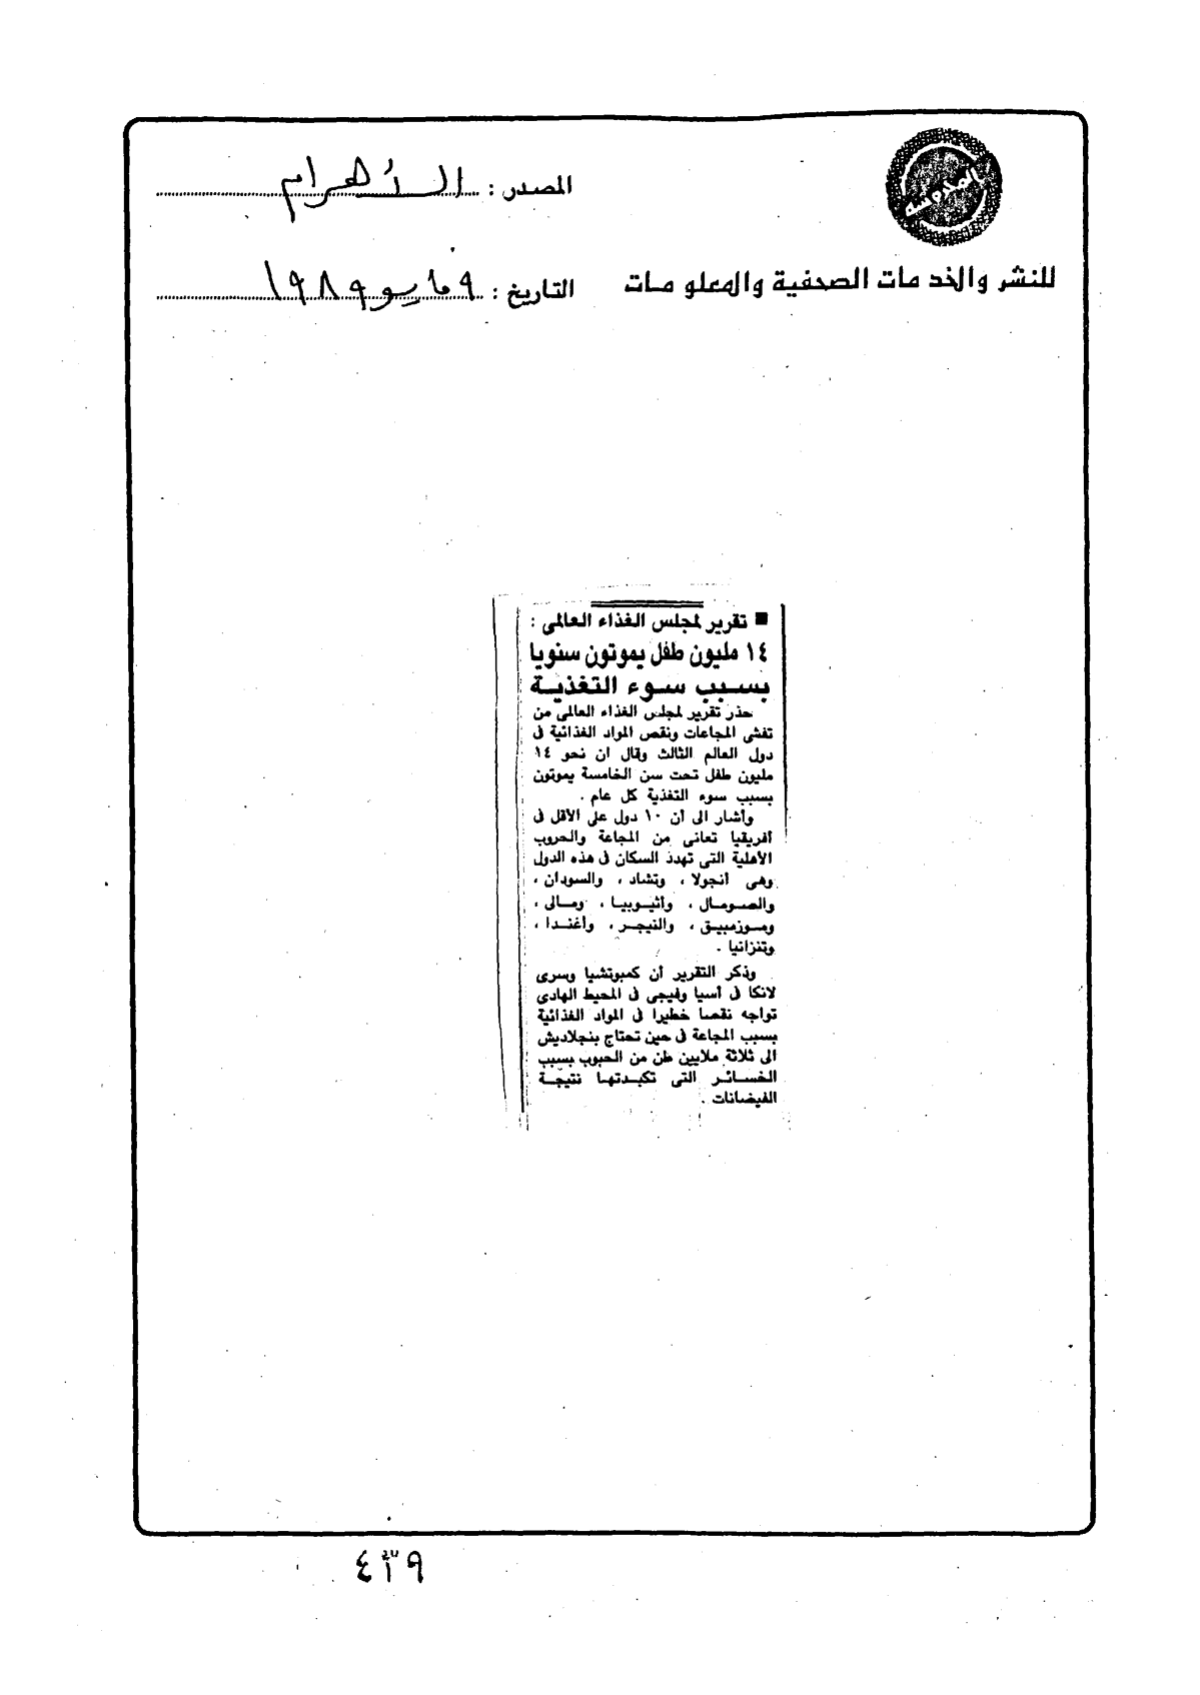 المصدر : الأهرام
للنشر والخدمات الصحفية والمعلومات
التاريخ : ٩ مايو ١٩٨٩
■ تقرير لمجلس الغذاء العالمى :
١٤ مليون طفل يموتون سنويا
بسبب سوء التغذية
حذر تقرير لمجلس الغذاء العالمى من
تفشى المجاعات ونقص المواد الغذائية فى
دول العالم الثالث وقال ان نحو ١٤
مليون طفل تحت سن الخامسة يموتون
بسبب سوء التغذية كل عام .
وأشار الى أن ١٠ دول على الأقل فى
أفريقيا تعانى من المجاعة والحروب
الأهلية التى تهدد السكان فى هذه الدول
وهى أنجولا ، وتشاد ، والسودان ،
والصومال ، وأثيوبيا ، ومالى ،
وموزمبيق ، والنيجر ، وأغندا ،
وتنزانيا .
وذكر التقرير أن كمبوتشيا وسرى
لانكا فى أسيا وفيجى فى المحيط الهادى
تواجه نقصا خطيرا فى المواد الغذائية
بسبب المجاعة فى حين تحتاج بنجلاديش
الى ثلاثة ملايين طن من الحبوب بسبب
الخسائر التى تكبدتها نتيجة
الفيضانات .